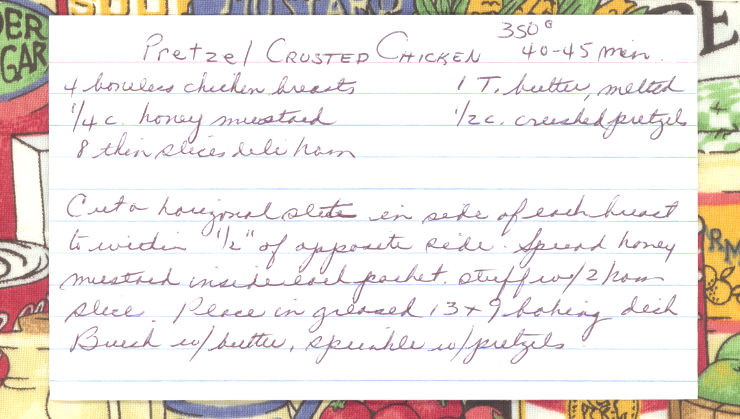 350°
Pretzel CRUSTED CHICKEN 40-45 min.
4 boneless chicken breasts 1 T. butter, melted
1/4 c. honey mustard 1/2 c. crushed pretzels
8 thin slices deli ham
Cut a horizonal slit in side of each breast
to within 1/2" of opposite side. Spread honey
mustard inside each pocket. stuff w/ 2 ham
slice. Place in greased 13x9 baking dish
Brush w/ butter, sprinkle w/ pretzels
MUSTARD
GAR
ER
E
RM